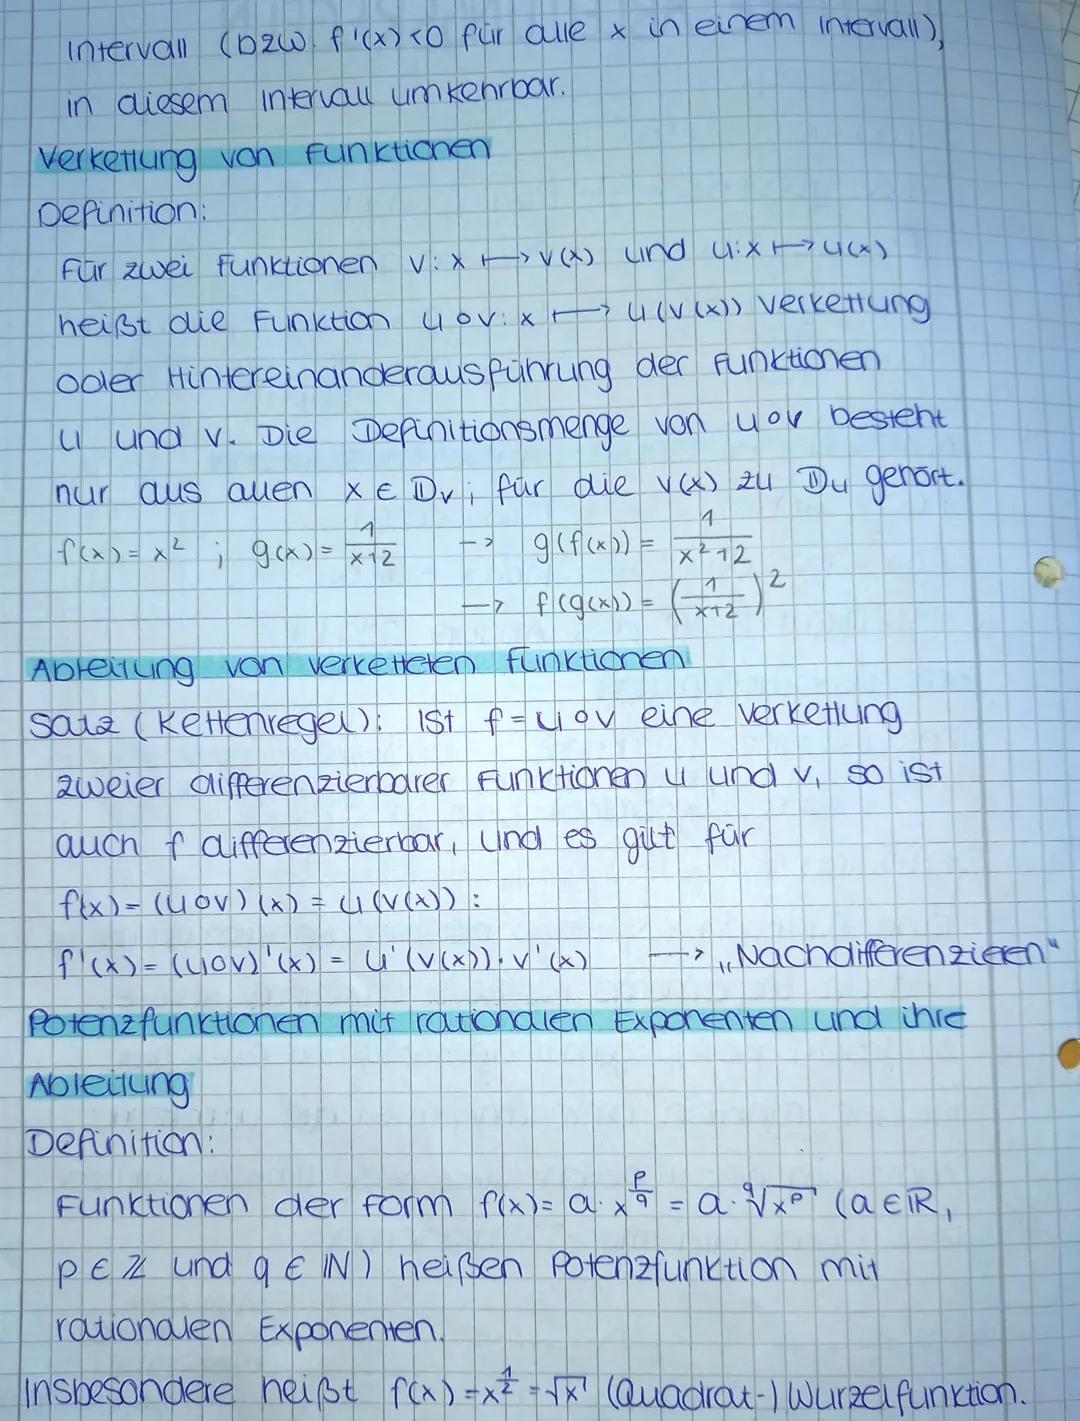 Intervall (bzw. f'(x)<0 für alle x in einem Intervall),
in diesem Intervall umkehrbar.
Verkettung von Funktionen
Definition:
Für zwei Funktionen v: x ↦ v(x) und u: x ↦ u(x)
heißt die Funktion u∘v: x ↦ u(v(x)) Verkettung
oder Hintereinanderausführung der Funktionen
u und v. Die Definitionsmenge von u∘v besteht
nur aus allen x ∈ Dᵥ, für die v(x) zu Dᵤ gehört.
f(x) = x² ; g(x) = 1/(x+2) → g(f(x)) = 1/(x²+2)
→ f(g(x)) = (1/(x+2))²
Ableitung von verketteten Funktionen
Satz (Kettenregel): Ist f = u∘v eine Verkettung
zweier differenzierbarer Funktionen u und v, so ist
auch f differenzierbar, und es gilt für
f(x) = (u∘v)(x) = u(v(x)):
f'(x) = (u∘v)'(x) = u'(v(x))·v'(x) → „Nachdifferenzieren"
Potenzfunktionen mit rationalen Exponenten und ihre
Ableitung
Definition:
Funktionen der Form f(x) = a·x^(p/q) = a·ᑫ√(x^p) (a ∈ ℝ,
p ∈ ℤ und q ∈ ℕ) heißen Potenzfunktion mit
rationalen Exponenten.
Insbesondere heißt f(x) = x^(1/2) = √x (Quadrat-) Wurzelfunktion.